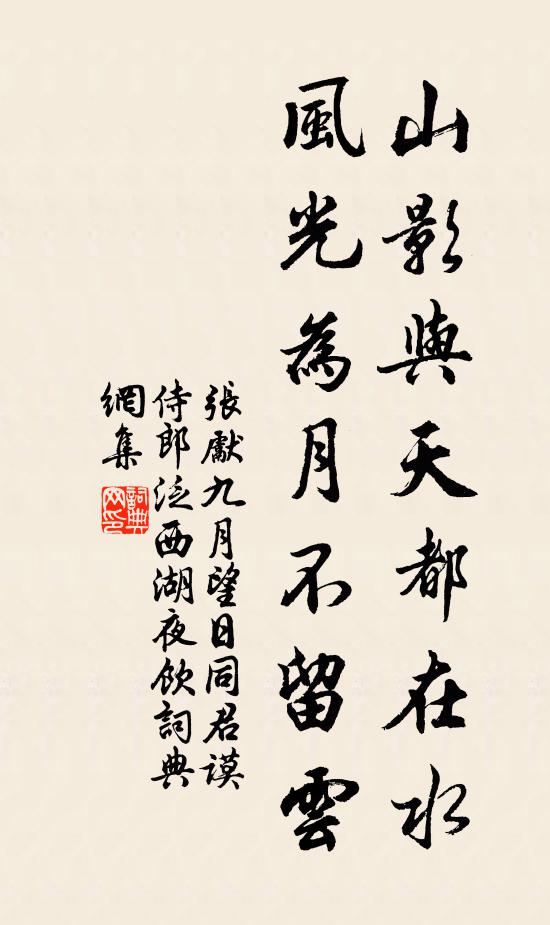 山影與天都在水
風光為月不留雲
張獻九月望日同君謨
侍郎泛西湖夜飲詞典
網集
詞典
网印